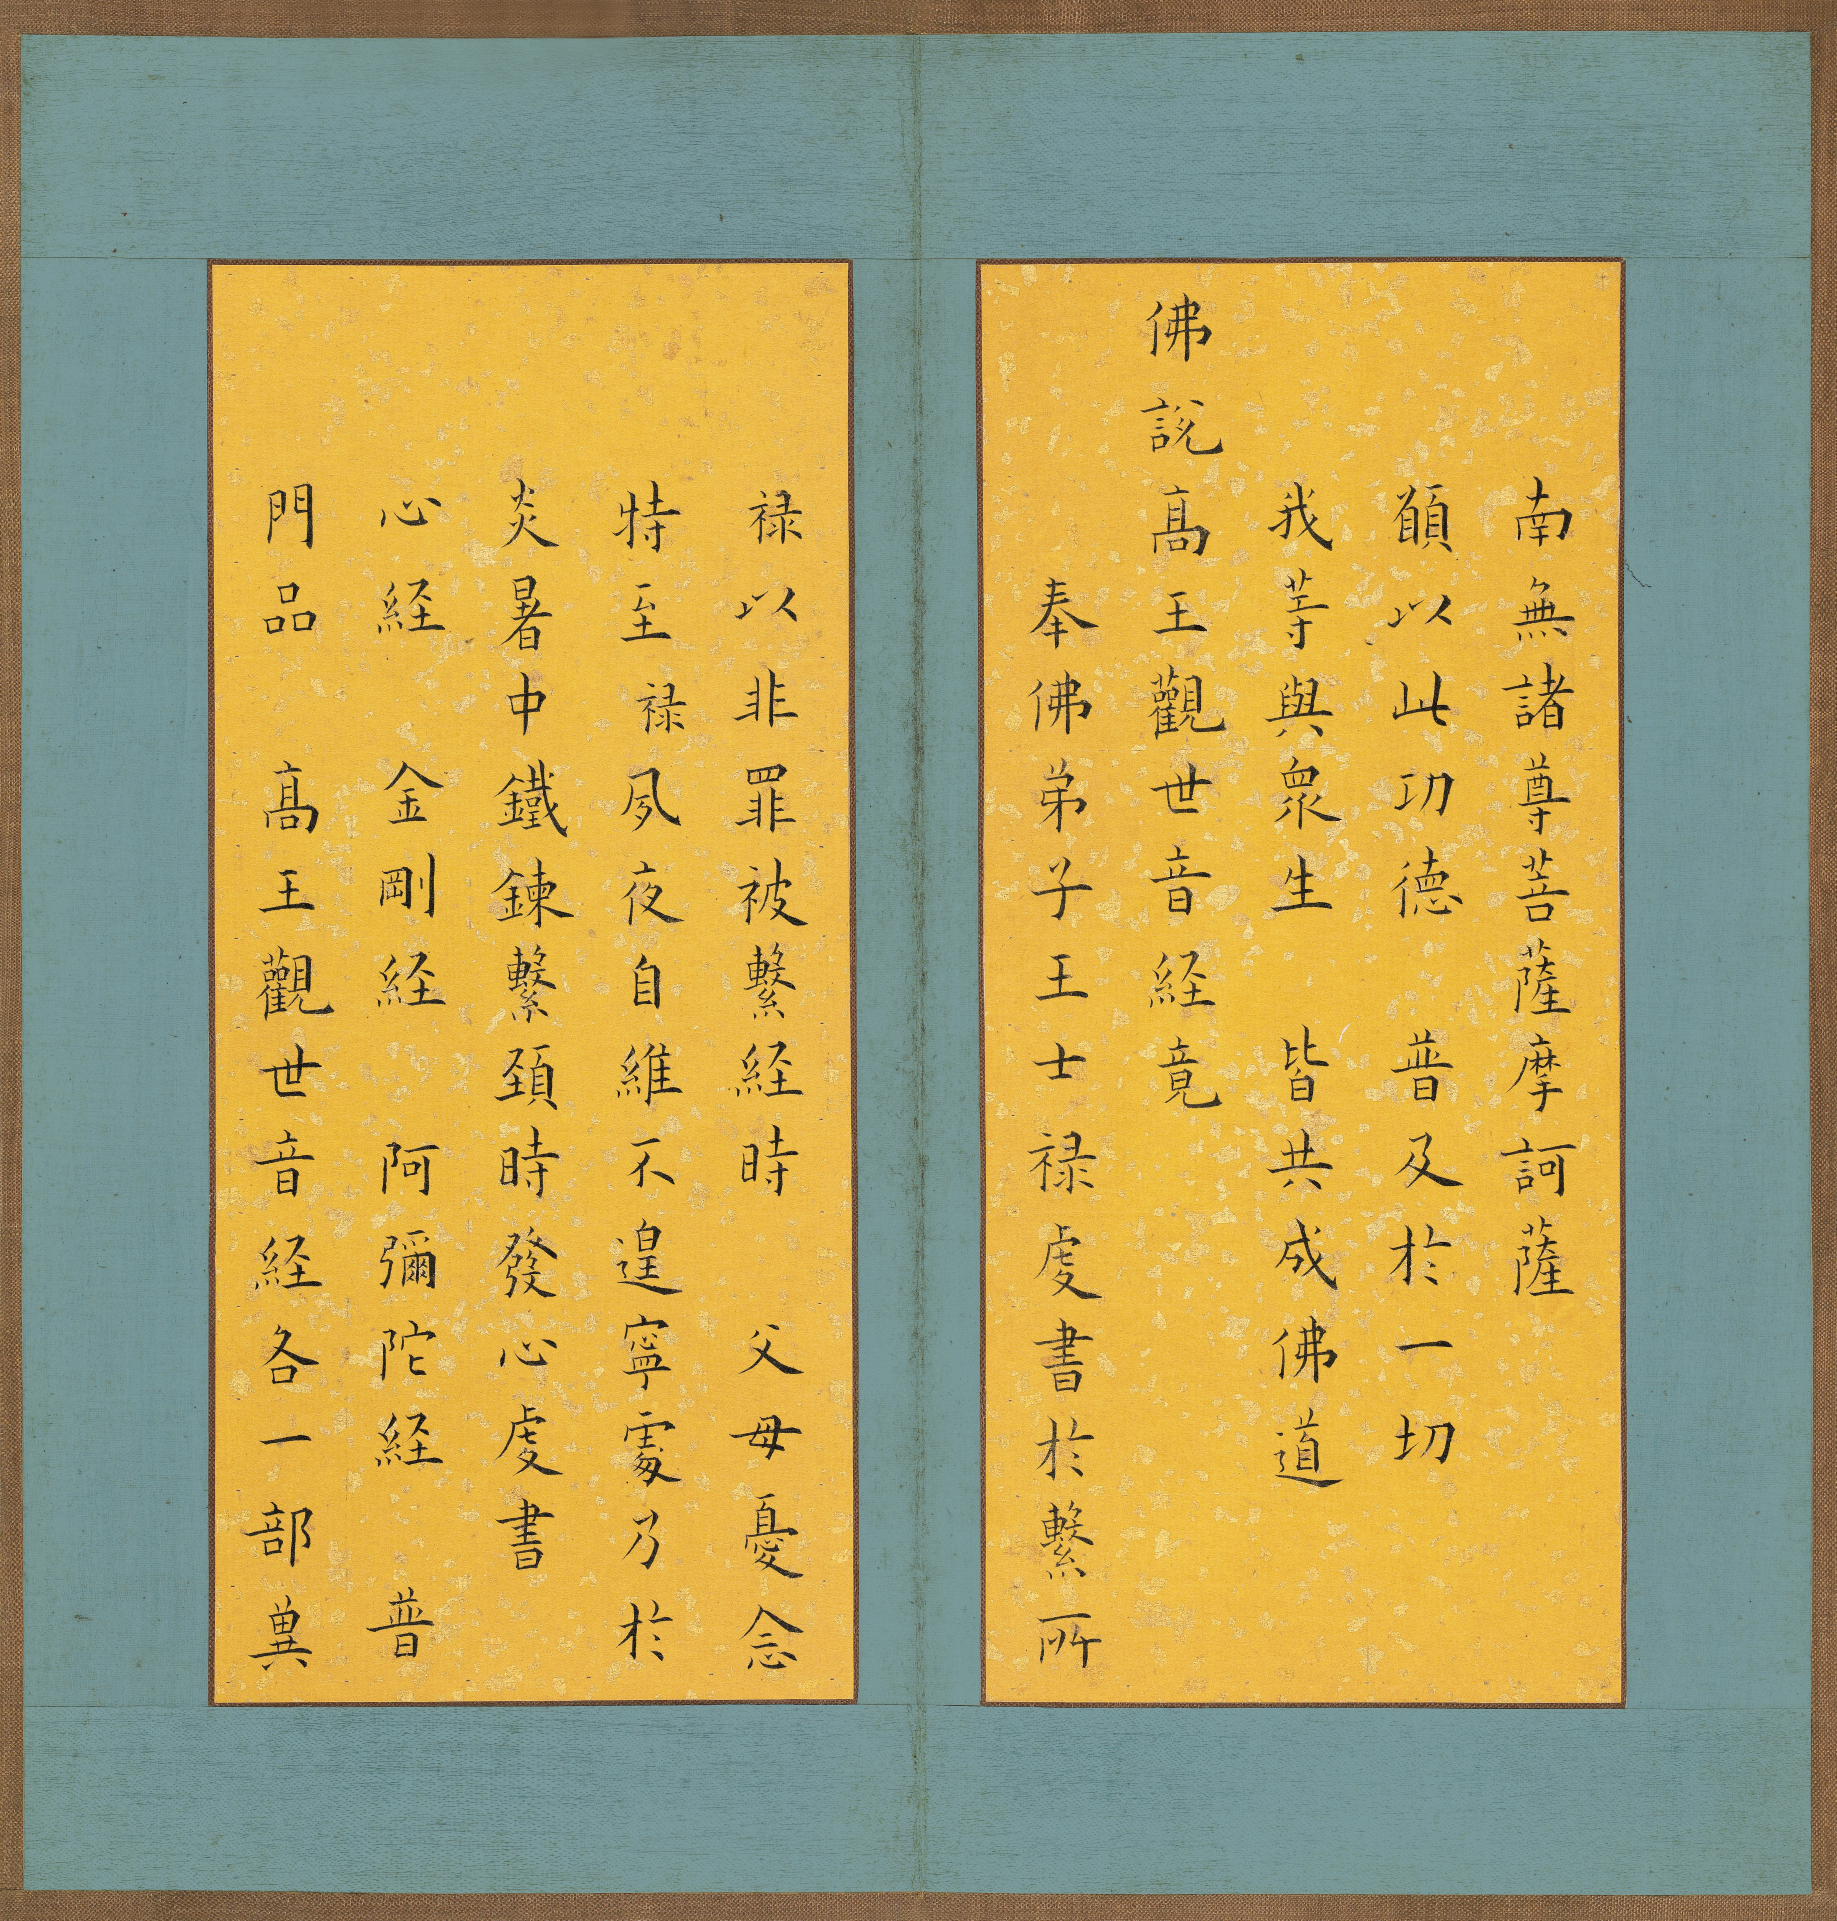 南無諸尊菩薩摩訶薩
願以此功德 普及於一切
我等與衆生 皆共成佛道
佛說髙王觀世音経竟
奉佛弟子王士禄虔書於繫所
禄以非罪被繫経時 父母憂念
特至禄夙夜自維不遑寧處乃於
炎暑中鐵鍊繫頚時發心虔書
心経 金剛経 阿彌陀経 普
門品 髙王觀世音経各一部兾